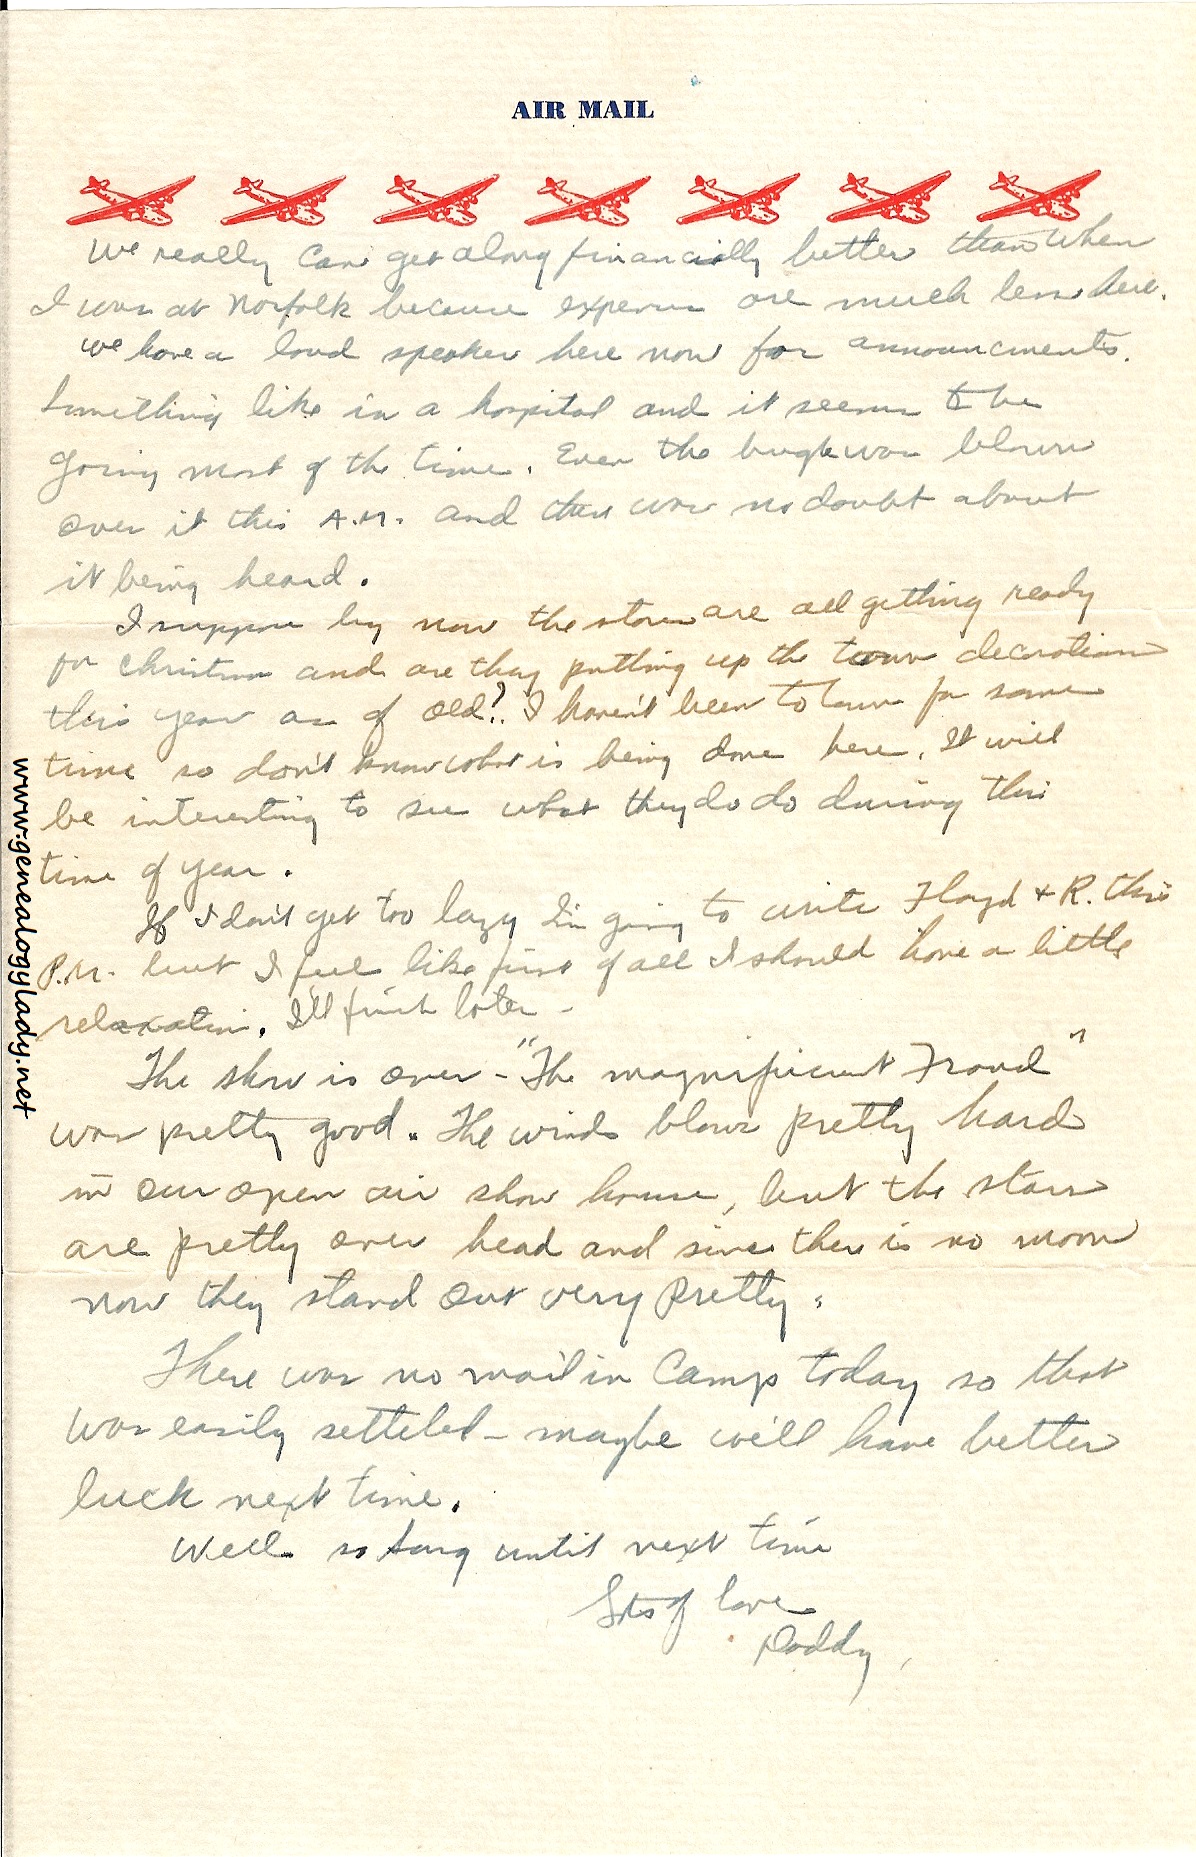 AIR MAIL
We really can get along financially better than when
I was at Norfolk because expenses are much less here.
We have a loud speaker here now for announcments.
Something like in a hospital and it seems to be
going most of the time. Even the bugle was blown
over it this A.M. and there was no doubt about
it being heard.
I suppose by now the stores are all getting ready
for Christmas and are they putting up the town decorations
this year as of old? I haven't been to town for some
time so don't know what is being done here. It will
be interesting to see what they do do during this
time of year.
If I don't get too lazy I'm going to write Floyd & R. this
P.M. but I feel like first of all I should have a little
relaxation. I'll finish later -
The show is over - "The magnificent Fraud"
was pretty good. The winds blows pretty hard
in our open air show house, but the stars
are pretty over head and since there is no moon
now they stand out very pretty.
There was no mail in Camp today so that
was easily setteled - maybe we'll have better
luck next time.
Well so long until next time
Lots of love
Daddy,
www.genealogylady.net